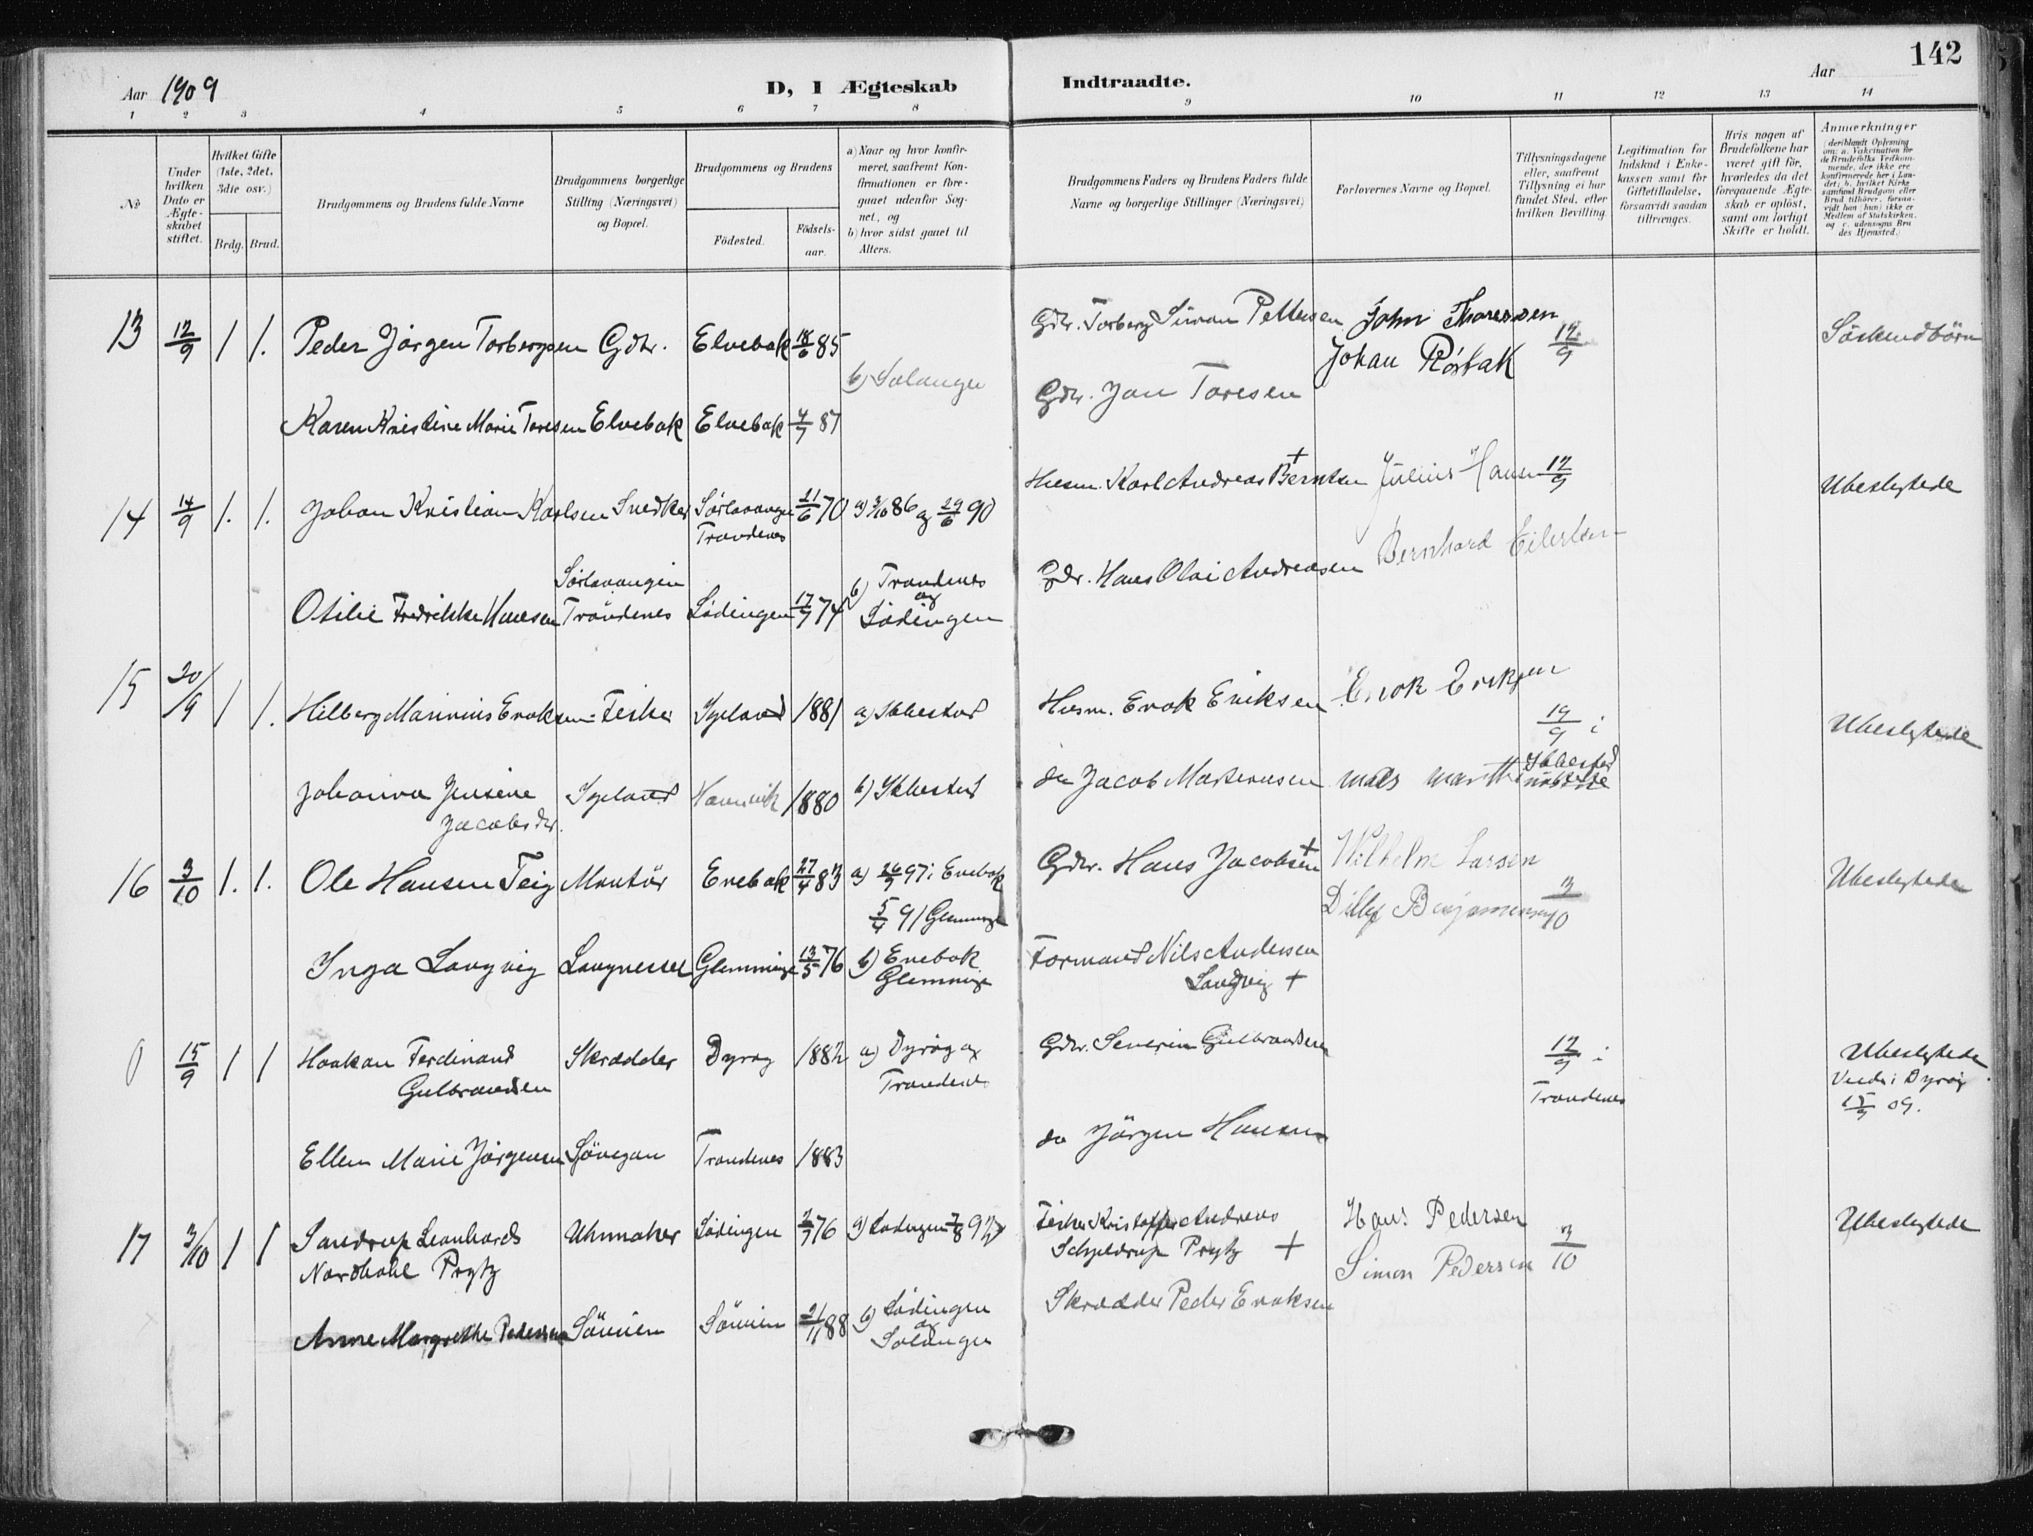 142
Aar 1909
D, I Ægteskab
Indtraadte.
Aar
1 2 3 4 5 6 7 8 9 10 11 12 13 14
No
Under hvilken Dato er Ægte-skabet stiftet.
Hvilket Gifte (1ste, 2det, 3die osv.)
Brdg. Brud.
Brudgommens og Brudens fulde Navne
Brudgommens borgerlige Stilling (Næringsvei) og Bopæl.
Brudgommens og Brudens
Födested.
Födsels-aar.
a) Naar og hvor konfir-meret, saafremt Kon-firmationen er fore-gaaet udenfor Sog-net, og
b) hvor sidst gaaet til Alters.
Brudgommens Faders og Brudens Faders fulde Navne og borgerlige Stillinger (Næringsvei)
Forlovernes Navne og Bopæl.
Tillysningsdagene eller, saafremt Tillysning ei har fundet Sted, efter hvilken Bevilling.
Legitimation for Indskud i Enke-kassen samt for Giftetilladelse, forsaavidt saadan tiltrænges.
Hvis nogen af Brudefolkene har været gift før, hvorledes da det foregaaende Ægte-skab er oplöst, samt om lovligt Skifte er holdt.
Anmærkninger (deriblandt Oplysning om: a. Vakcination for de Brudefolks Vedkom-mende, der ikke ere konfirmerede her i Lan-det; b. hvilket Kirke-samfund Brudgom eller Brud tilhörer, forsaa-vidt han (hun) ikke er Medlem af Statskirken, og c. udensogns Bru-des Hjemsted.)
13 12/9 1 1. Peder Jørgen Torbergsen Gdbr. Elvebak 18/6 85 Gdbr. Torberg Simon Pettersen John Thoressen 12/9 Söskendbörn
b) Salangen Johan Röstak
Karen Kristine Marie Toresen Elvebak Elvebak 4/7 87 Gdbr. Jon Toresen
14 14/9 1. 1. Johan Kristian Karlsen Snedker Sørlavangen Trondenes 21/6 70 a) 3/10 86 og 29/6 90 Husm. Karl Andreas Berntsen + Julius Hansen 12/9 Ubeslegtede
Otilie Fredrikke Hansen Sørlavangen Trondenes Lødingen 17/7 74 b) Trondenes og Lødingen Gdr. Hans Olai Andreasen Bernhard Eilertsen
15 20/9 1 1. Hilberg Marinius Enoksen Fisker Igeland 1881 a) Ibbestad Husm. Enok Eriksen Enok Eriksen 19/9 i Ubeslegtede
Johanna Jensine Jacobsdtr. Igeland Hamnvik 1880 b) Ibbestad do Jacob Martenusen Ibbestad
16 3/10 1. 1. Ole Hansen Teig Montör Enebak 27/4 83 a) 26/9 97 i Enebak Gdbr. Hans Jacobsen + Wilhelm Larsen Ubeslegtede
5/4 91 Glemminge Benjaminsen 3/10
Inga Langvig Langnesset Glemminge 13/5 76 b) Enebak Glemminge Formand Nils Andersen Langvig +
0 15/9 1 1 Haakon Ferdinand Gulbrandsen Skrædder Dyrøy 1882 a) Dyrøy og Trondenes Gdbr. Severin Gulbrandsen 12/9 i Trondenes Ubeslegtede
Viede i Dyrøy 15/9 09.
Ellen Marie Jørgensen Sjøvegan Trondenes 1883 do Jörgen Hansen
17 3/10 1 1 Leonhard Nordbohl Prytz Uhrmaker Lødingen 2/7 76 a) Lødingen 7/8 92 Fisker Kristoffer Andreas Schjeldrup Prytz + Hans Pedersen 3/10 Ubeslegtede
Simon Pedersen
Anne Margrethe Pedersen Søvien Søvien 21/11 88 b) Lødingen og Salangen Skrædder Peder Enoksen